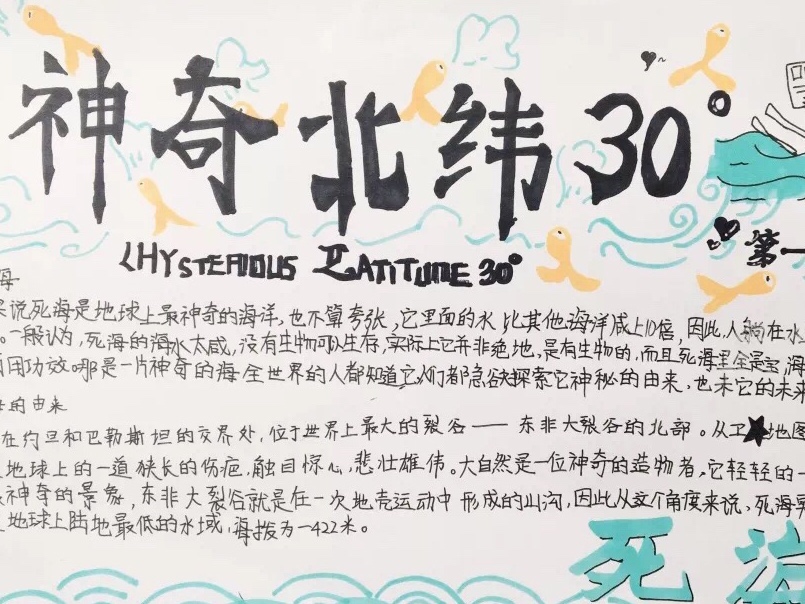 神奇北纬30°
第一
LHYSTERIOUS LATITUDE 30°
海
说死海是地球上最神奇的海洋，也不算夸张，它里面的水比其他海洋咸上10倍，因此，人躺在水
。一般认为，死海的海水太咸，没有生物可以生存，实际上它并非绝地，是有生物的，而且死海里全是宝，海
用功效。哪是一片神奇的海全世界的人都知道它，人们都隐欲探索它神秘的由来，也未它的未来
的由来
在约旦和巴勒斯坦的交界处，位于世界上最大的裂谷——东非大裂谷的北部。从卫★地图
地球上的一道狭长的伤疤，触目惊心，悲壮雄伟。大自然是一位神奇的造物者，它轻轻的一
神奇的景象，东非大裂谷就是在一次地壳运动中形成的山沟，因此从这个角度来说，死海
地球上陆地最低的水域，海拨为一422米。
死海